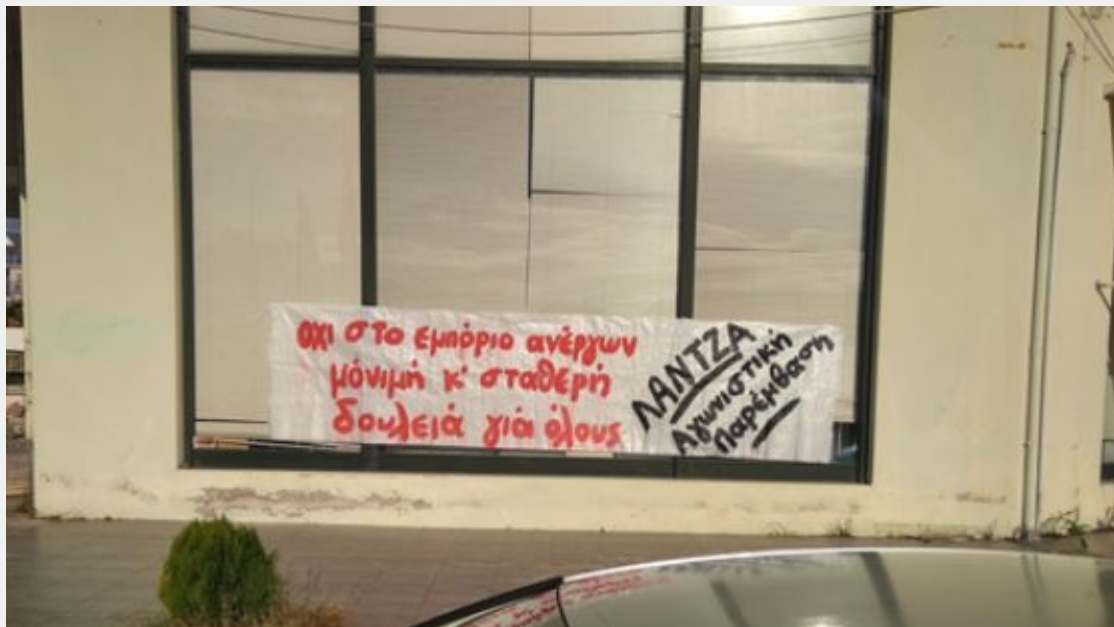 ΟΧΙ στο εμπόριο ανέργων
μόνιμη κ' σταθερή
δουλειά για όλους
ΛΑΝΤΖΑ
Αγωνιστική
Παρέμβαση